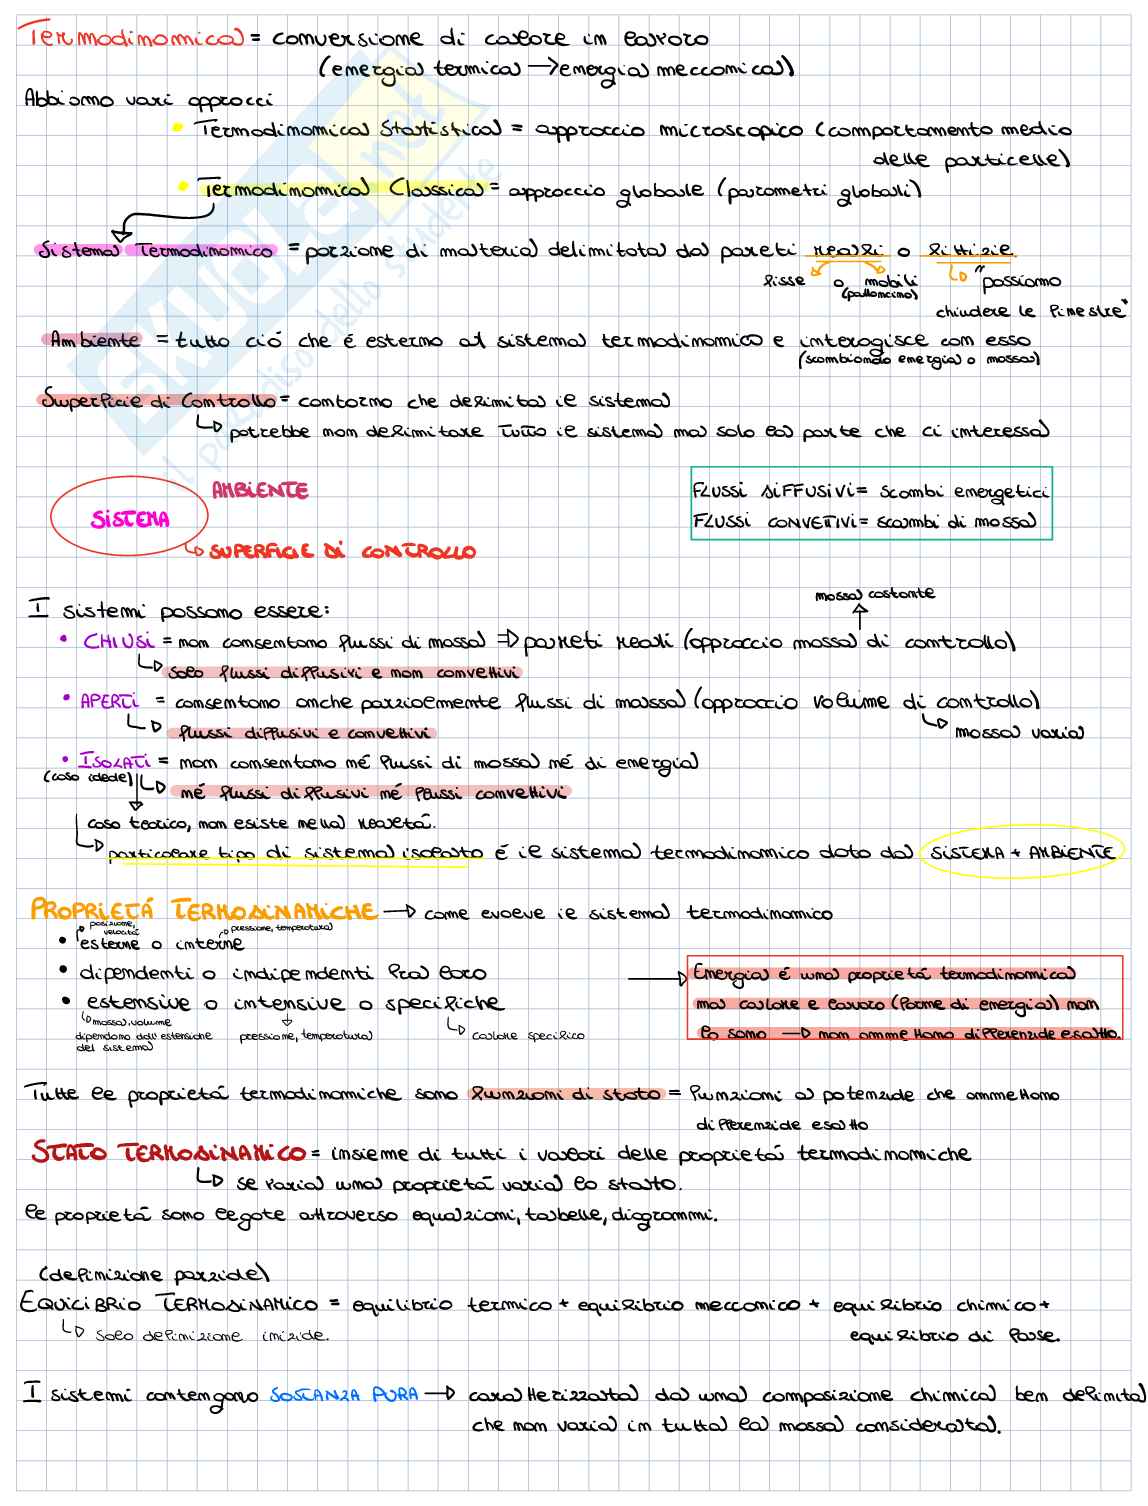 Termodinamica = conversione di calore in lavoro
(energia termica → energia meccanica)
Abbiamo vari approcci
• Termodinamica Statistica = approccio microscopico (comportamento medio
delle particelle)
• Termodinamica Classica = approccio globale (parametri globali)
Sistema Termodinamico = porzione di materia delimitata da pareti reali o fittizie
fisse o mobili "possiamo
(palloncino)
chiudere le finestre"
Ambiente = tutto ció che é esterno al sistema termodinamico e interagisce con esso
(scambiando energia o massa)
Superficie di Controllo = contorno che delimita il sistema
↳ potrebbe non delimitare tutto il sistema ma solo la parte che ci interessa
AMBIENTE
FLUSSI DIFFUSIVI = scambi energetici
SISTEMA
FLUSSI CONVETTIVI = scambi di massa
↳ SUPERFICIE DI CONTROLLO
massa costante
I sistemi possono essere:
• CHIUSI = non consentono flussi di massa ⇒ pareti reali (approccio massa di controllo)
↳ solo flussi diffusivi e non convettivi
• APERTI = consentono anche parzialmente flussi di massa (approccio volume di controllo)
↳ flussi diffusivi e convettivi ↳ massa varia
• ISOLATI = non consentono né flussi di massa né di energia
(caso ideale)
↳ né flussi diffusivi né flussi convettivi
caso teorico, non esiste nella realtá.
↳ particolare tipo di sistema isolato é il sistema termodinamico dato da SISTEMA + AMBIENTE
PROPRIETÁ TERMODINAMICHE → come evolve il sistema termodinamico
posizione, velocitá
pressione, temperatura
• esterne o interne
• dipendenti o indipendenti fra loro
→ Energia é una proprietá termodinamica
• estensive o intensive o specifiche
ma calore e lavoro (forme di energia) non
↳ massa, volume
dipendono dall'estensione pressione, temperatura ↳ calore specifico
del sistema
lo sono → non ammettono differenziale esatto.
Tutte le proprietá termodinamiche sono funzioni di stato = funzioni a potenziale che ammettono
differenziale esatto
STATO TERMODINAMICO = insieme di tutti i valori delle proprietá termodinamiche
↳ se varia una proprietá varia lo stato.
le proprietá sono legate attraverso equazioni, tabelle, diagrammi.
(definizione parziale)
EQUILIBRIO TERMODINAMICO = equilibrio termico + equilibrio meccanico + equilibrio chimico +
↳ solo definizione iniziale. equilibrio di fase.
I sistemi contengono SOSTANZA PURA → caratterizzata da una composizione chimica ben definita
che non varia in tutta la massa considerata.
SKUOLA.net
il paradiso dello studente